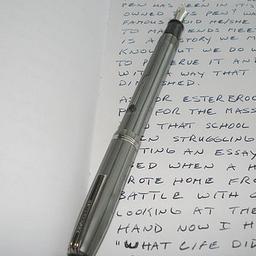 PEN HAS BEEN IN ITS
OWNED THIS PEN? WAS
FAMOUS? DID HE/SHE
TO MAKE ENDS MEET
IS A STORY WE M
KNOW BUT WE DO W
TO PRESERVE IT AND
WITH A WAY THAT
ISHED.
ESTERBROO
FOR THE MASS
THAT SCHOOL
STRUGGLING
TING AN ESSAY
SED WHEN A H
ROTE HOME FRO
BATTLE WITH G
LOOKING AT THE
HAND NOW I H
"WHAT LIFE DID